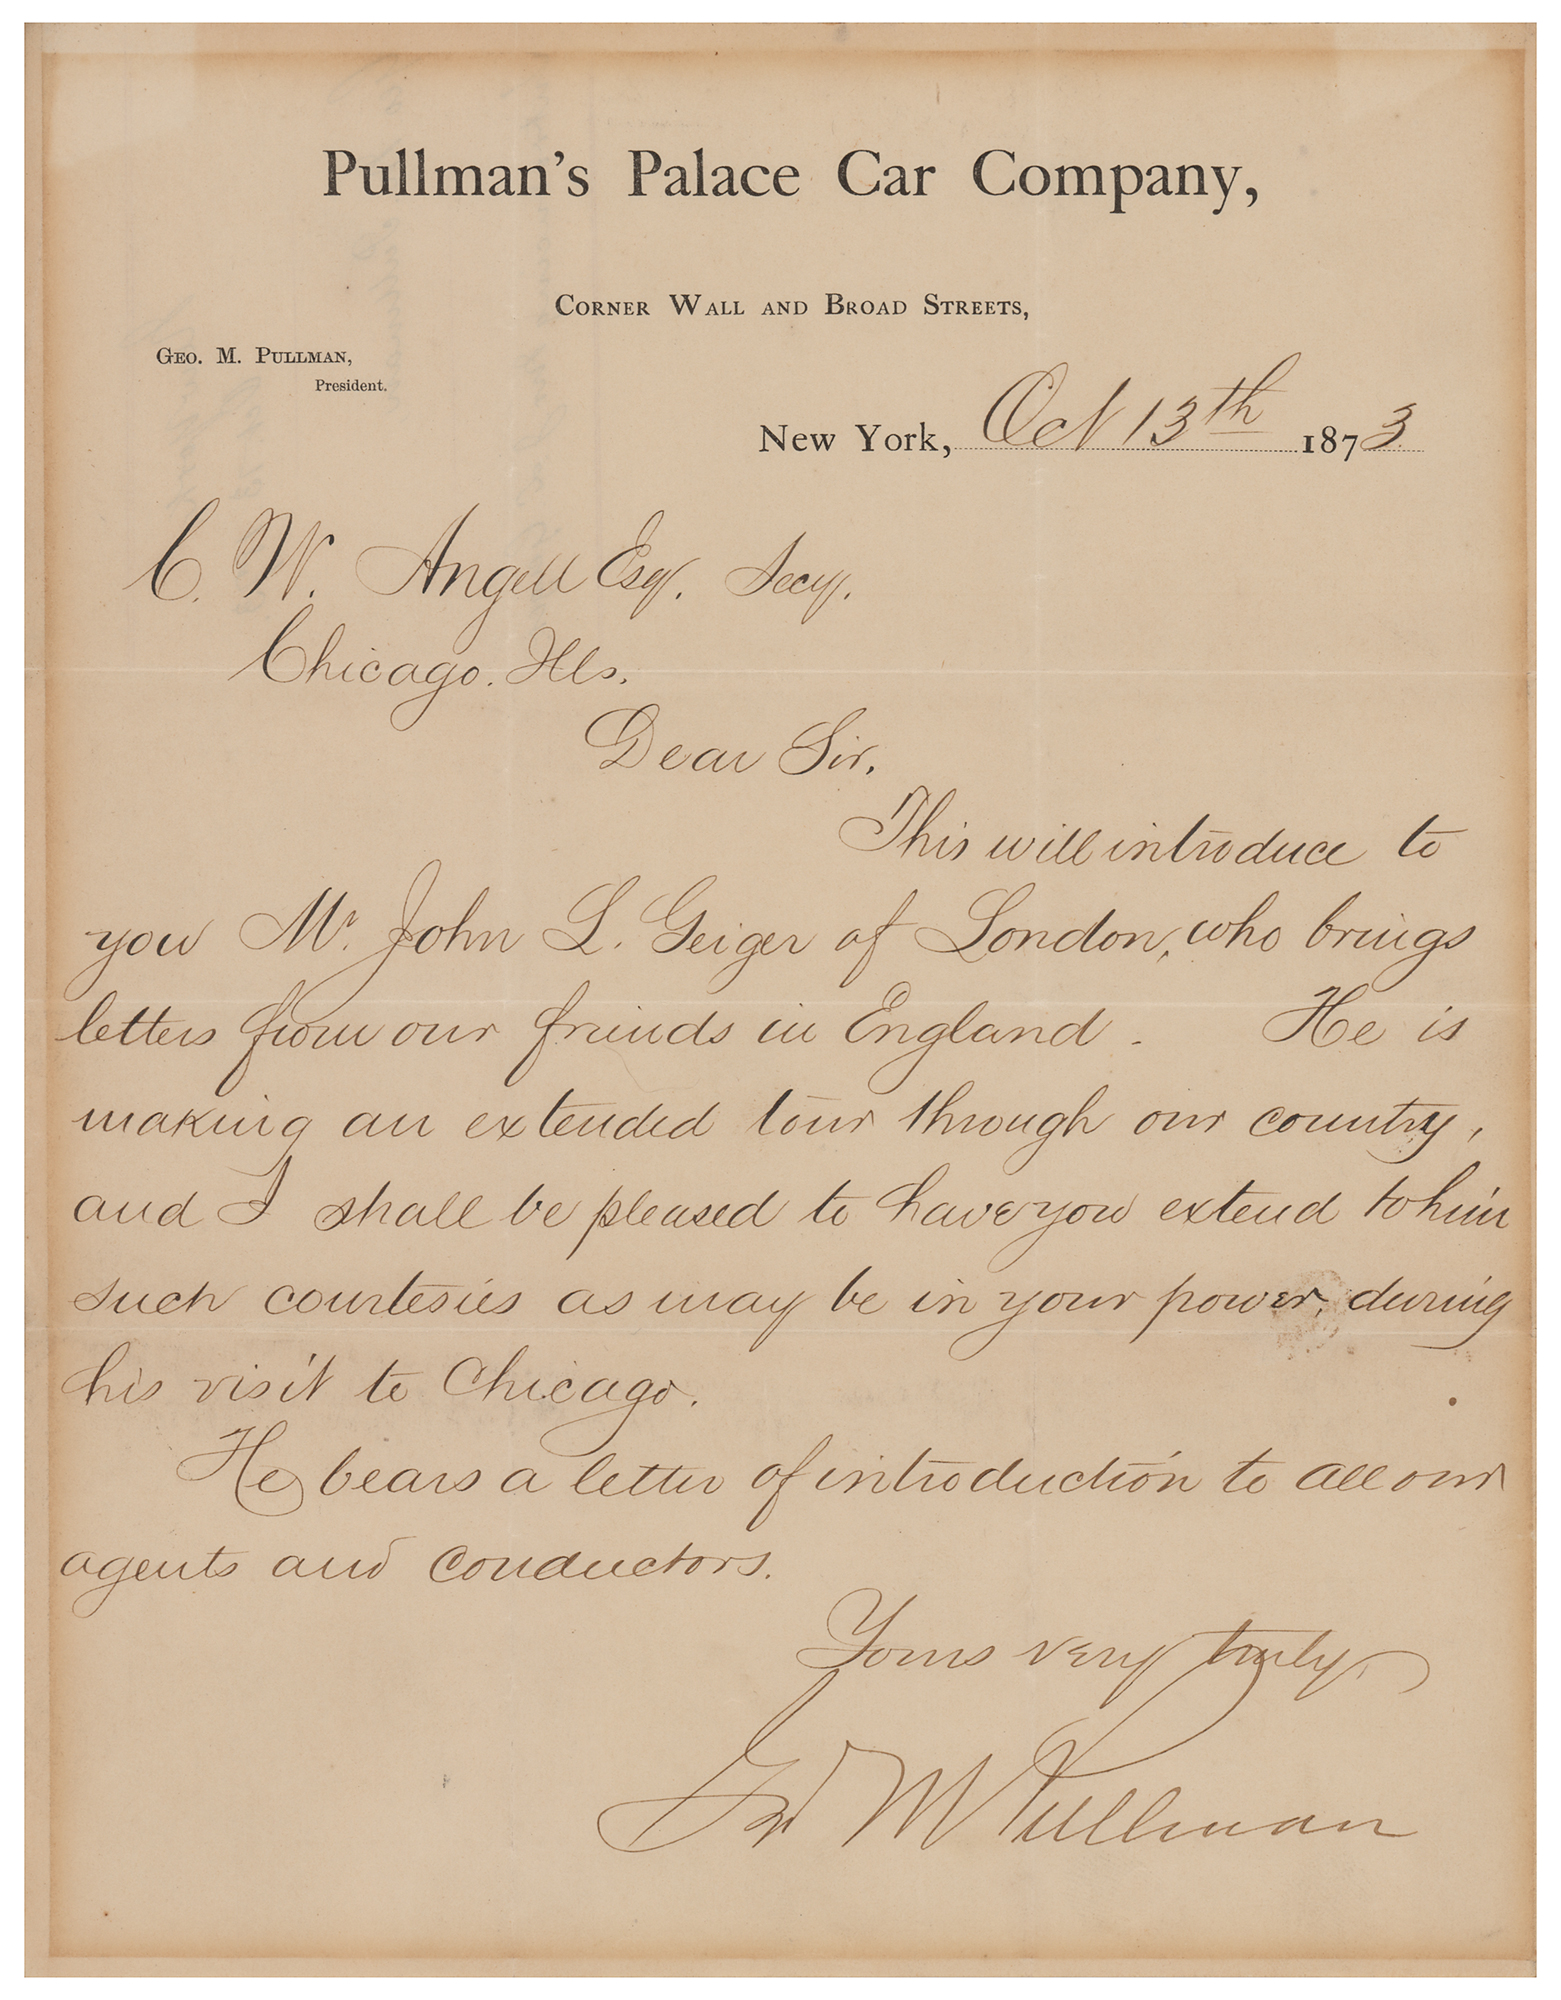 Pullman's Palace Car Company,
Corner Wall and Broad Streets,
Geo. M. Pullman,
President.
New York, Oct 13th 1873
C. W. Angell Esq. Secy.
Chicago. Ills.
Dear Sir,
This will introduce to
you Mr. John L. Geiger of London, who brings
letters from our friends in England. He is
making an extended tour through our country,
and I shall be pleased to have you extend to him
such courtesies as may be in your power, during
his visit to Chicago.
He bears a letter of introduction to all our
agents and conductors.
Yours very truly,
Geo M Pullman